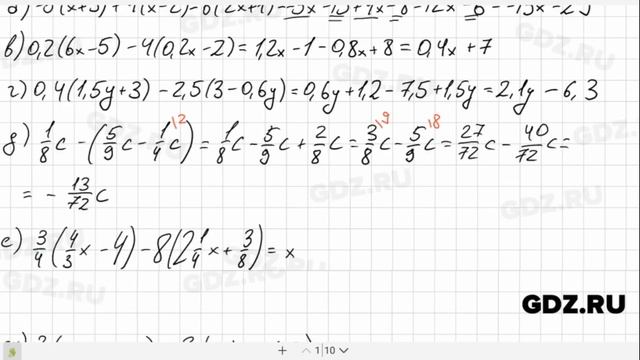 в) 0,2(6x-5)-4(0,2x-2)=1,2x-1-0,8x+8=0,4x+7
г) 0,4(1,5y+3)-2,5(3-0,6y)=0,6y+1,2-7,5+1,5y=2,1y-6,3
д) 1/8c-(5/9c-1/4c)=1/8c-5/9c+2/8c=3/8c-5/9c=27/72c-40/72c=
=-13/72c
е) 3/4(4/3x-4)-8(2 1/4x+3/8)=x
GDZ.RU
1|10